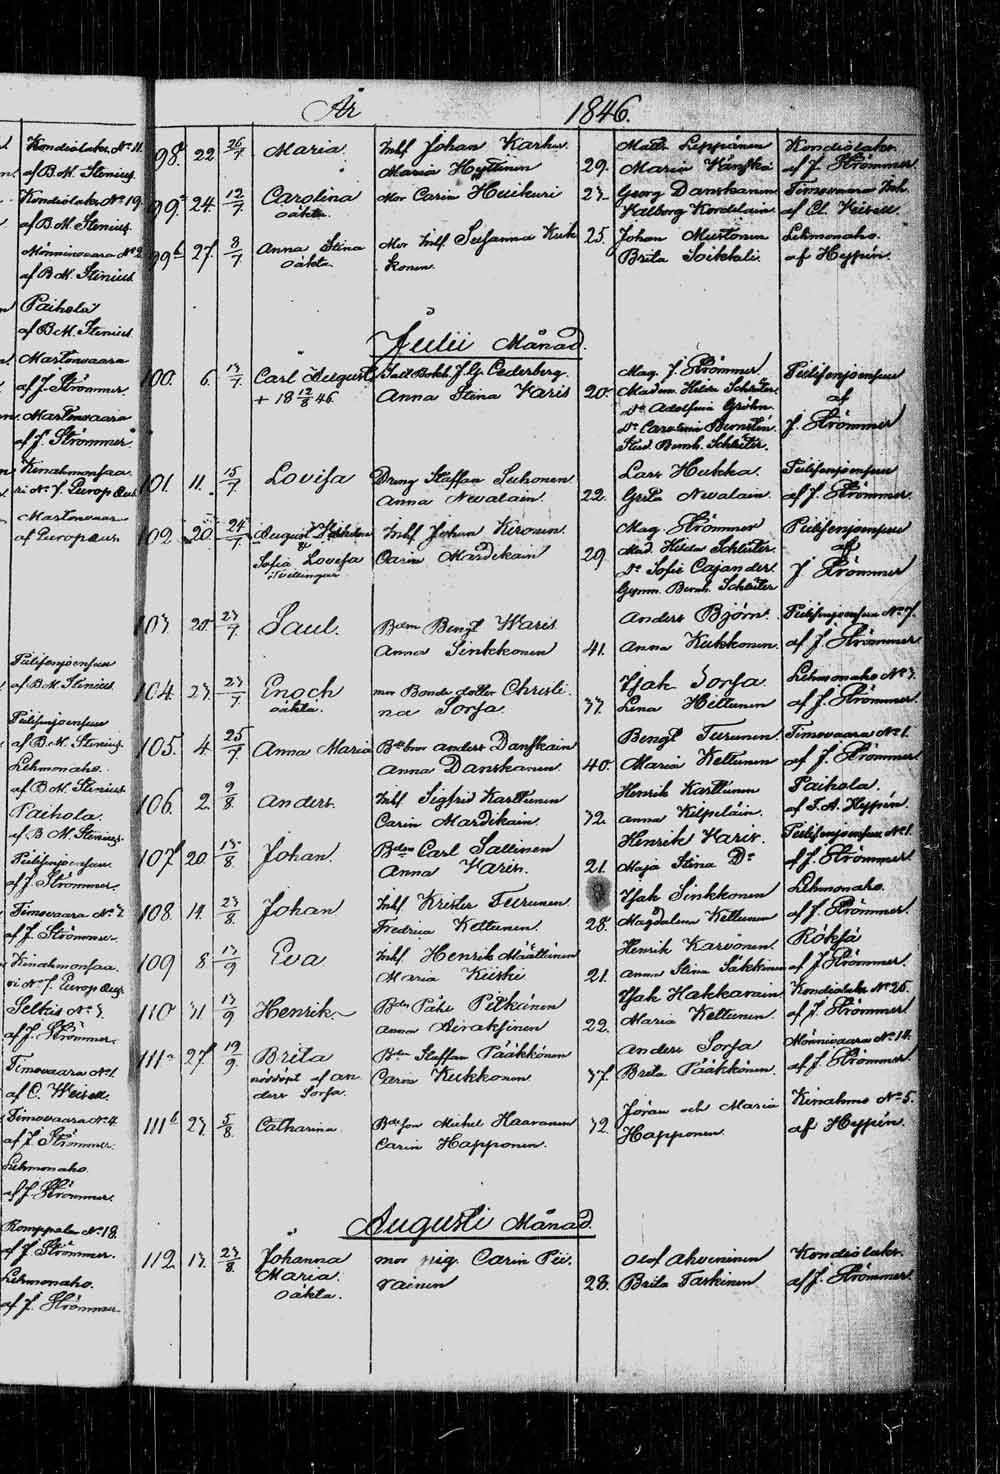 Kondiolaks N° 11.
af B. M. Stenius
Kondiolaks N° 19.
af B. M. Stenius
Mönninvaara N° 2
af B. M. Stenius
Paihola
af B. M. Stenius
Martonvaara
af J. Strömmer.
Martonvaara
af J. Strömmer
Kinahmonsaa.
ri N° 7. Europæus
Martonvaar
af Europæus
Pielisenjoensuu
af B. M. Stenius
Pielisenjoensuu
af B. M. Stenius.
Lehmonaho.
af B. M. Stenius
Paihola.
af B. M. Stenius.
Pielisenjoensuu
af J. Strömmer.
Timovaara N° 3.
af J. Strömmer.
Kinahmonsaa.
ri N° 7. Europæus
Selkis N° 3.
af J. Strömmer.
Timovaara N° 1.
af C. Weisell.
Timovaara N° 4.
af J. Strömmer.
Lehmonaho.
af J. Strömmer.
Romppala N° 18.
af J. Strömmer.
Lehmonaho.
af J. Strömmer.
År 1846.
98. 22 26/7 Maria. Inhs Johan Karhu. Matts Leppänen Kondiolaks.
Maria Hyttinen 29. Maria af J. Strömmer
99.a 24. 12/7 Carolina Mor Carin Huikuri 23. Georg Danskanen Timovaara Inh.
oäkta. Walborg Kordelain af Cl. Weisell.
99.b 27. 8/7 Anna Stina Mor Inhs Susanna Kuk 25. Johan Mustonen Lehmonaho.
oäkta. konen. Brita Toikkali. af Heppén.
Julii Månad.
100. 6. 13/7 Carl August J. G. Cederberg. Mag. J. Strömmer. Pielisenjoensuu
+ 18 12/8 46. Anna Stina Waris 20. Madem Hilda Schlüter. af
D° Adolfina Gröhn. J. Strömmer
D° Carolina
Stud Bernh. Schlüter.
101. 11. 15/7 Lovisa Dreng Staffan Suhonen Lars Hukka. Pielisenjoensuu
Anna Nevalain. 22. Greta Nevalain. af J. Strömmer.
102. 20. 24/7 August Inhs Johan Kironen. Mag. Strömmer Pielisenjoensuu
& Sofia Lovisa Carin Mardikain 29. Mad. Hilda Schlüter. af
Tvillingar D° Sofie Cajander. J Strömmer
Gymn. Bernh. Schlüter
103. 20. 23/7 Paul. Bdem Bengt Waris Anders Björn. Pielisenjoensuu N° 7.
Anna Sinkkonen 41. Anna Kukkonen. af J. Strömmer.
104. 23. 23/7 Enoch mor Bonde dotter Christi Isak Sorsa. Lehmonaho N° 3.
oäkta. na Sorsa. 37. Lena Hiltunen af J. Strömmer.
105. 4 25/7 Anna Maria Anders Danskain Bengt Turunen. Timovaara N° 1.
Anna Danskanen 40. Maria Kettunen af J. Strömmer
106. 2. 9/8. Anders. Inhs Sigfrid Karttunen Henrik Karttunen Paihola.
Carin Mardikain. 32. Anna Kilpeläin. af J. A. Heppén.
107 20. 15/8. Johan. Bdem Carl Sallinen Henrik Waris. Pielisenjoensuu N° 1.
Anna Waris. 21. Maja Stina D° af J. Strömmer
108. 14. 23/8. Johan Inhs Krister Turunen. Isak Sinkkonen Lehmonaho.
Fredrica Kettunen. 28. Magdalena Kettunen af J. Strömmer.
109 8 13/9 Eva Inhs Henrik Määttänen Henrik Karvonen. Röksä
Maria Kiiski. 21. Anna Stina Säkkinen af J. Strömmer.
110 31 13/9 Henrik Bdem Påhl Pitkänen Isak Hakkarain Kondiolaks N° 26.
Anna Airaksinen 22. Maria Kettunen. af J. Strömmer
111a 27. 19/9. Brita Bdem Staffan Pääkkönen Anders Sorsa Mönnivaara N° 14.
nöddöpt af An Carin Kukkonen 37. Brita Pääkkönen. af J. Strömmer
ders Sorsa.
111b 23. 5/8. Catharina. Bdeson Michel Haaranen 32. Jöran och Maria Kinahmo N° 5.
Carin Happonen. Happonen. af Heppén.
Augusti Månad.
112 13. 23/8. Johanna mor pig. Carin Pii. Olof Ahveninen Kondiolaks.
Maria. rainen 28. Brita Tarkinen af J. Strömmer.
oäkta.